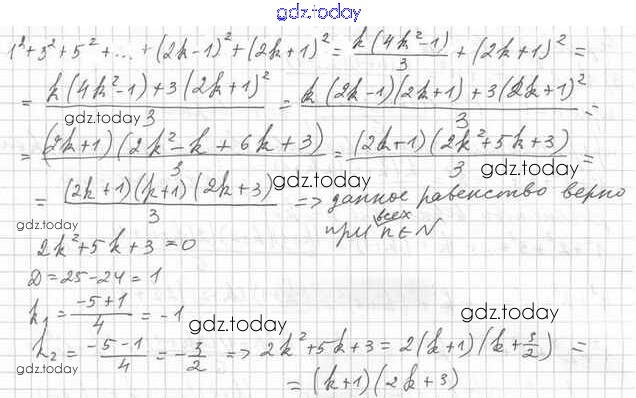 gdz.today
1² + 3² + 5² + ... + (2k-1)² + (2k+1)² = k(4k²-1)/3 + (2k+1)² =
= (k(4k²-1) + 3(2k+1)²)/3 = (k(2k-1)(2k+1) + 3(2k+1)²)/3 =
gdz.today
= (2k+1)(2k² - k + 6k + 3)/3 = (2k+1)(2k² + 5k + 3)/3 =
gdz.today
= (2k+1)(k+1)(2k+3)/3 => данное равенство верно
gdz.today
при всех n ∈ N
gdz.today
2k² + 5k + 3 = 0
D = 25 - 24 = 1
k₁ = (-5+1)/4 = -1
gdz.today
gdz.today
k₂ = (-5-1)/4 = -3/2 => 2k² + 5k + 3 = 2(k+1)(k + 3/2) =
gdz.today
= (k+1)(2k+3)